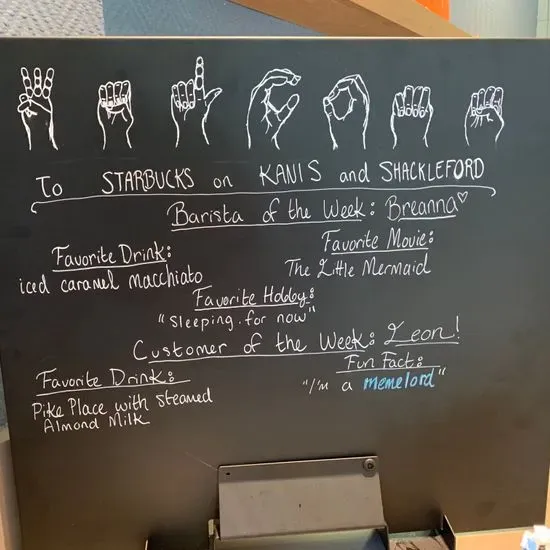 To STARBUCKS on KANIS and SHACKLEFORD
Barista of the Week: Breanna♡
Favorite Drink:
iced caramel macchiato
Favorite Movie:
The Little Mermaid
Favorite Hobby:
"Sleeping.for now"
Customer of the Week: Leon!
Favorite Drink:
Pike Place with Steamed
Almond Milk
Fun Fact:
"I'm a memelord"